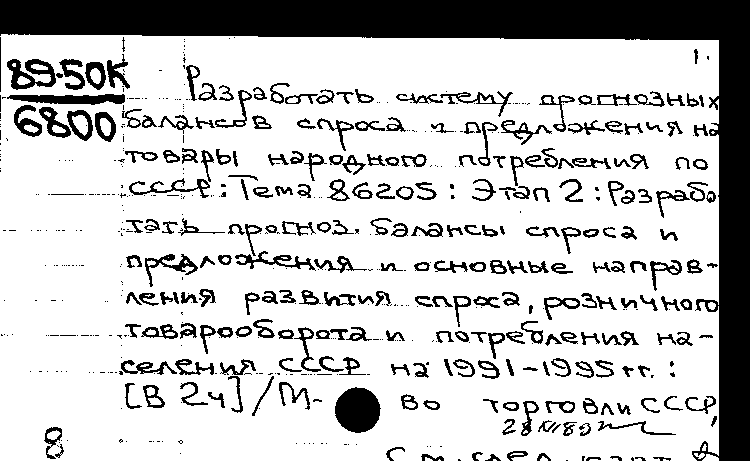 1.
89-50К
6800
Разработать систему прогнозных
балансов спроса и предложения на
товары народного потребления по
СССР: Тема 86205: Этап 2: Разрабо
тать прогноз. балансы спроса и
предложения и основные направ-
ления развития спроса, розничного
товарооборота и потребления на-
селения СССР на 1991-1995 гг.:
[В 2ч] / М-во торговли СССР,
8
См. след. карт